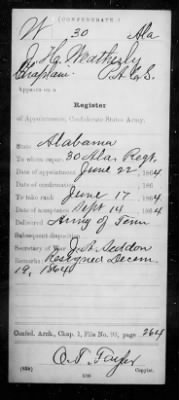 (CONFEDERATE.)
W 30 Ala
J. H. Weatherly
Chaplain. P.A.C.S.
Appears on a
Register
of Appointments, Confederate States Army.
State Alabama
To whom report 30 Ala. Regt.
Date of appointment June 22, 1864
Date of confirmation , 186
To take rank June 17, 1864
Date of acceptance Sept 14, 1864
Delivered Army of Tenn
Subsequent disposition
Secretary of War J. A. Seddon
Remarks: Resigned Decem.
19, 1864
Confed. Arch., Chap. 1, File No. 93, page 264
Copyist.